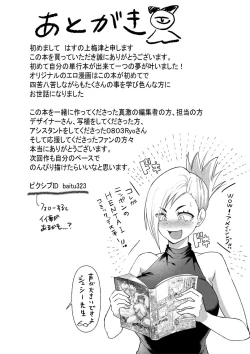 あとがき
初めまして　はすの上梅津と申します
この本を買っていただき誠にありがとうございます。
初めて自分の単行本が出来て一つの夢が叶いました!
オリジナルのエロ漫画はこの本が初めてで
四苦八苦しながらもたくさんの事を学び色んな方に
お世話になりました
この本を一緒に作ってくださった真激の編集者の方、担当の方
デザイナーさん、写植をしてくださった方、
アシスタントをしてくださった0803Ryoさん
そして応援してくださったファンの方々
本当にありがとうございます。
次回作も自分のペースで
のんびり描けたらいいなと思います。
ピクシブID　baitu323
フォローすると
イイ事が
あるかも…?
WOW! アメイジング!
コレガ
ニッポンの
HENTAI
コミックス!
ドキ
ドキ
声が
大きいですよ
ジェシー先生